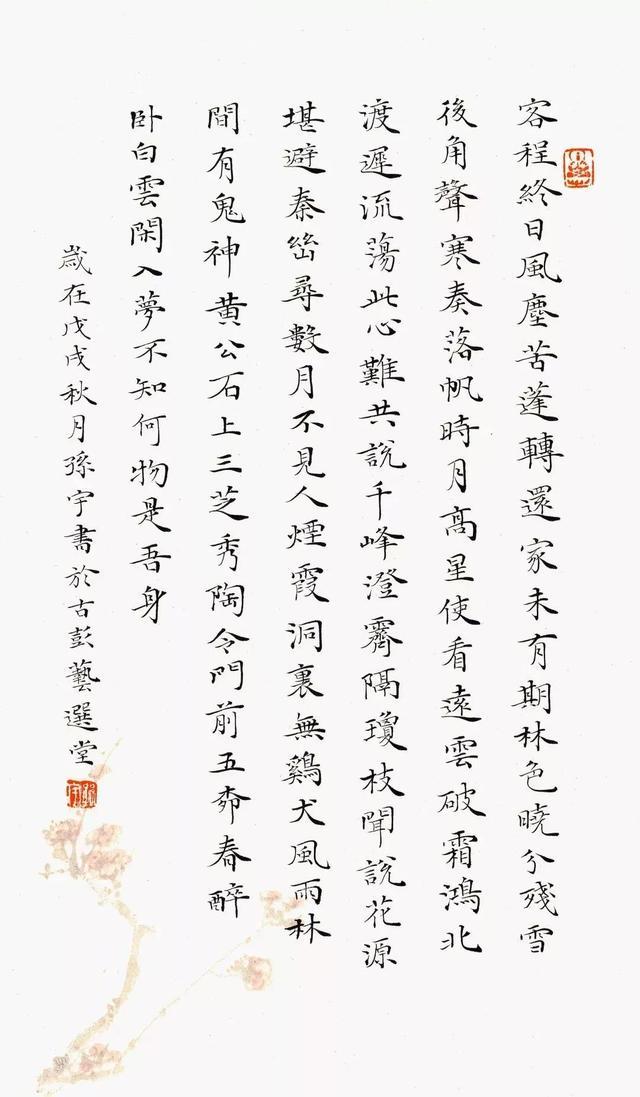 客程終日風塵苦蓬轉還家未有期林色曉分殘雪
後角聲寒奏落帆時月髙星使看遠雲破霜鴻北
渡遲流蕩此心難共說千峰澄霽隔瓊枝聞說花源
堪避秦幽尋數月不見人煙霞洞裏無鷄犬風雨林
間有鬼神黃公石上三芝秀陶令門前五柳春醉
卧白雲閑入夢不知何物是吾身
歲在戊戌秋月孫宇書於古彭藝選堂